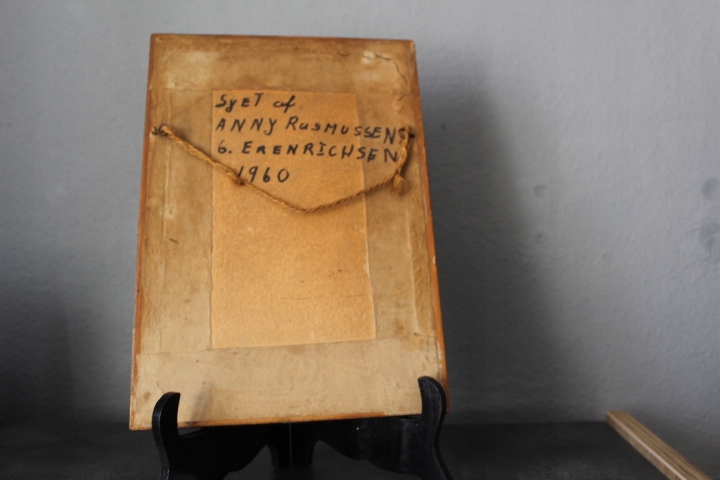 SyET af
ANNY RASMUSSEN
G. ERENRICHSEN
1960